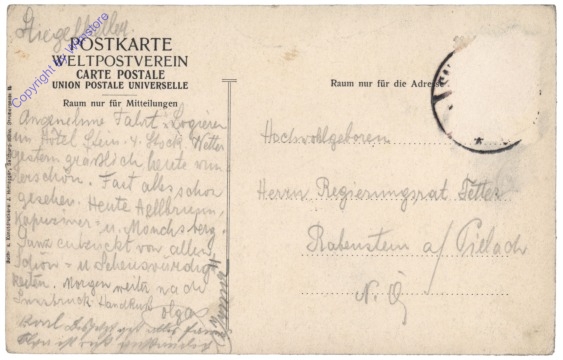 Stieglkeller
POSTKARTE
WELTPOSTVEREIN
CARTE POSTALE
UNION POSTALE UNIVERSELLE
Raum nur für Mitteilungen
Raum nur für die Adresse
Angenehme Fahrt. Logieren
im Hôtel Stein. 4. Stock. Wetter
gestern gräßlich heute wun
derschön. Fast alles schon
gesehen. Heute Hellbrunn,
Kapuziner- u. Mönchsberg.
Ganz entzückt von allen
Schön- u Sehenswürdig
keiten. Morgen weiter nach
Innsbruck. Handkuß Olga
Hochwohlgeboren
Herrn Regierungsrat Tetter
Rabenstein a/ Pielach
N. Ö.
Copyright by